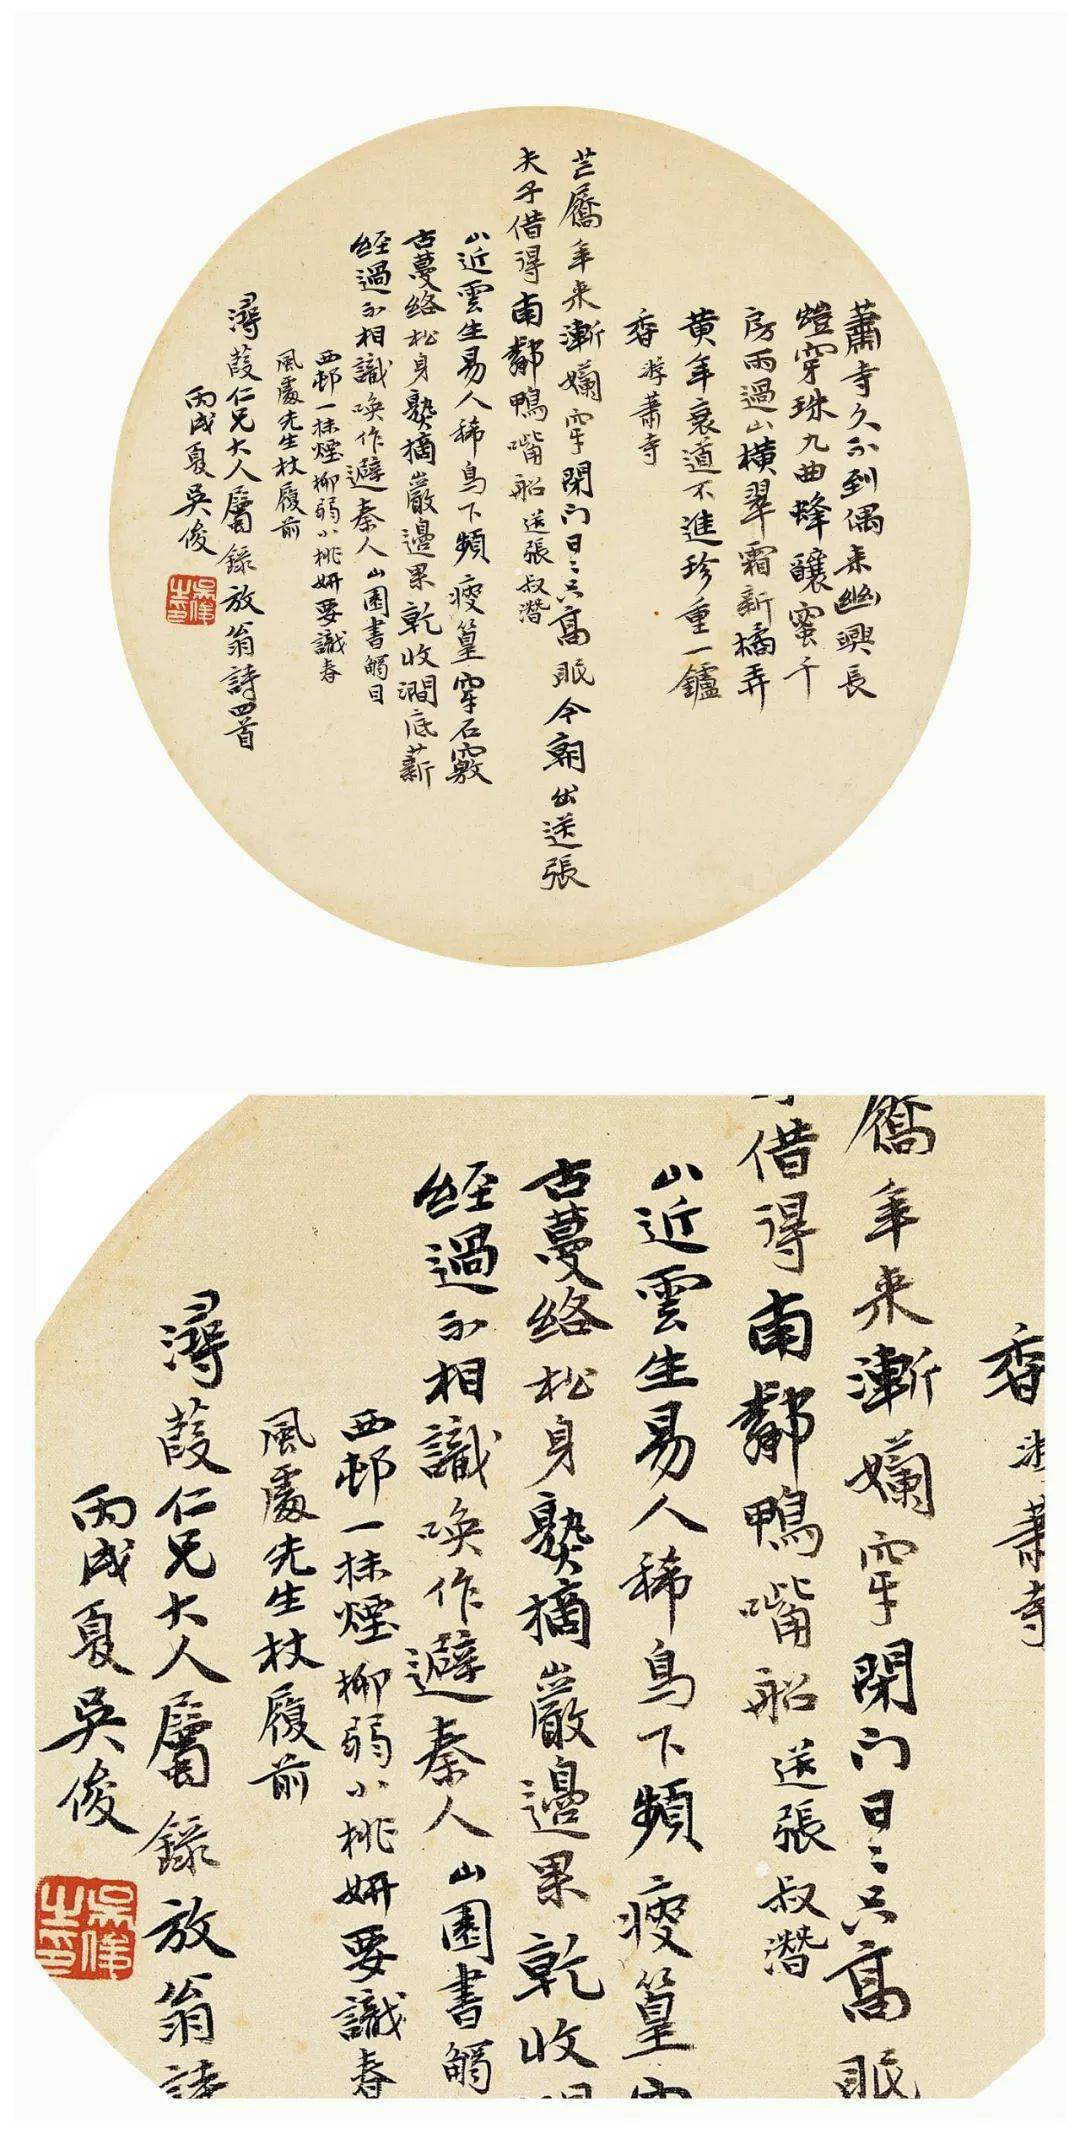 蕭寺久不到偶来幽興長
燈穿珠九曲蜂釀蜜千
房雨過山橫翠霜新橘弄
黄年衰道不進珍重一鑪
香 游蕭寺
芒屩年来漸嬾穿閉门日〻只高眠今朝出送張
夫子借得南鄰鴨嘴船 送張叔潛
山近雲生易人稀鳥下頻瘦篁穿石竅
古蔓絡松身熟摘巖邊果乾收澗底薪
經過不相識喚作避秦人 山園書觸目
西邨一抹煙柳弱小桃妍要識春
風處先生杖履前
潯葭仁兄大人屬錄放翁詩四首
丙戌夏吳俊
吳俊之印
香 游蕭寺
屩年来漸嬾穿閉门日〻只高眠
借得南鄰鴨嘴船 送張叔潛
山近雲生易人稀鳥下頻瘦篁
古蔓絡松身熟摘巖邊果乾收
經過不相識喚作避秦人 山園書觸
西邨一抹煙柳弱小桃妍要識春
風處先生杖履前
潯葭仁兄大人屬錄放翁詩
丙戌夏吳俊
吳俊之印